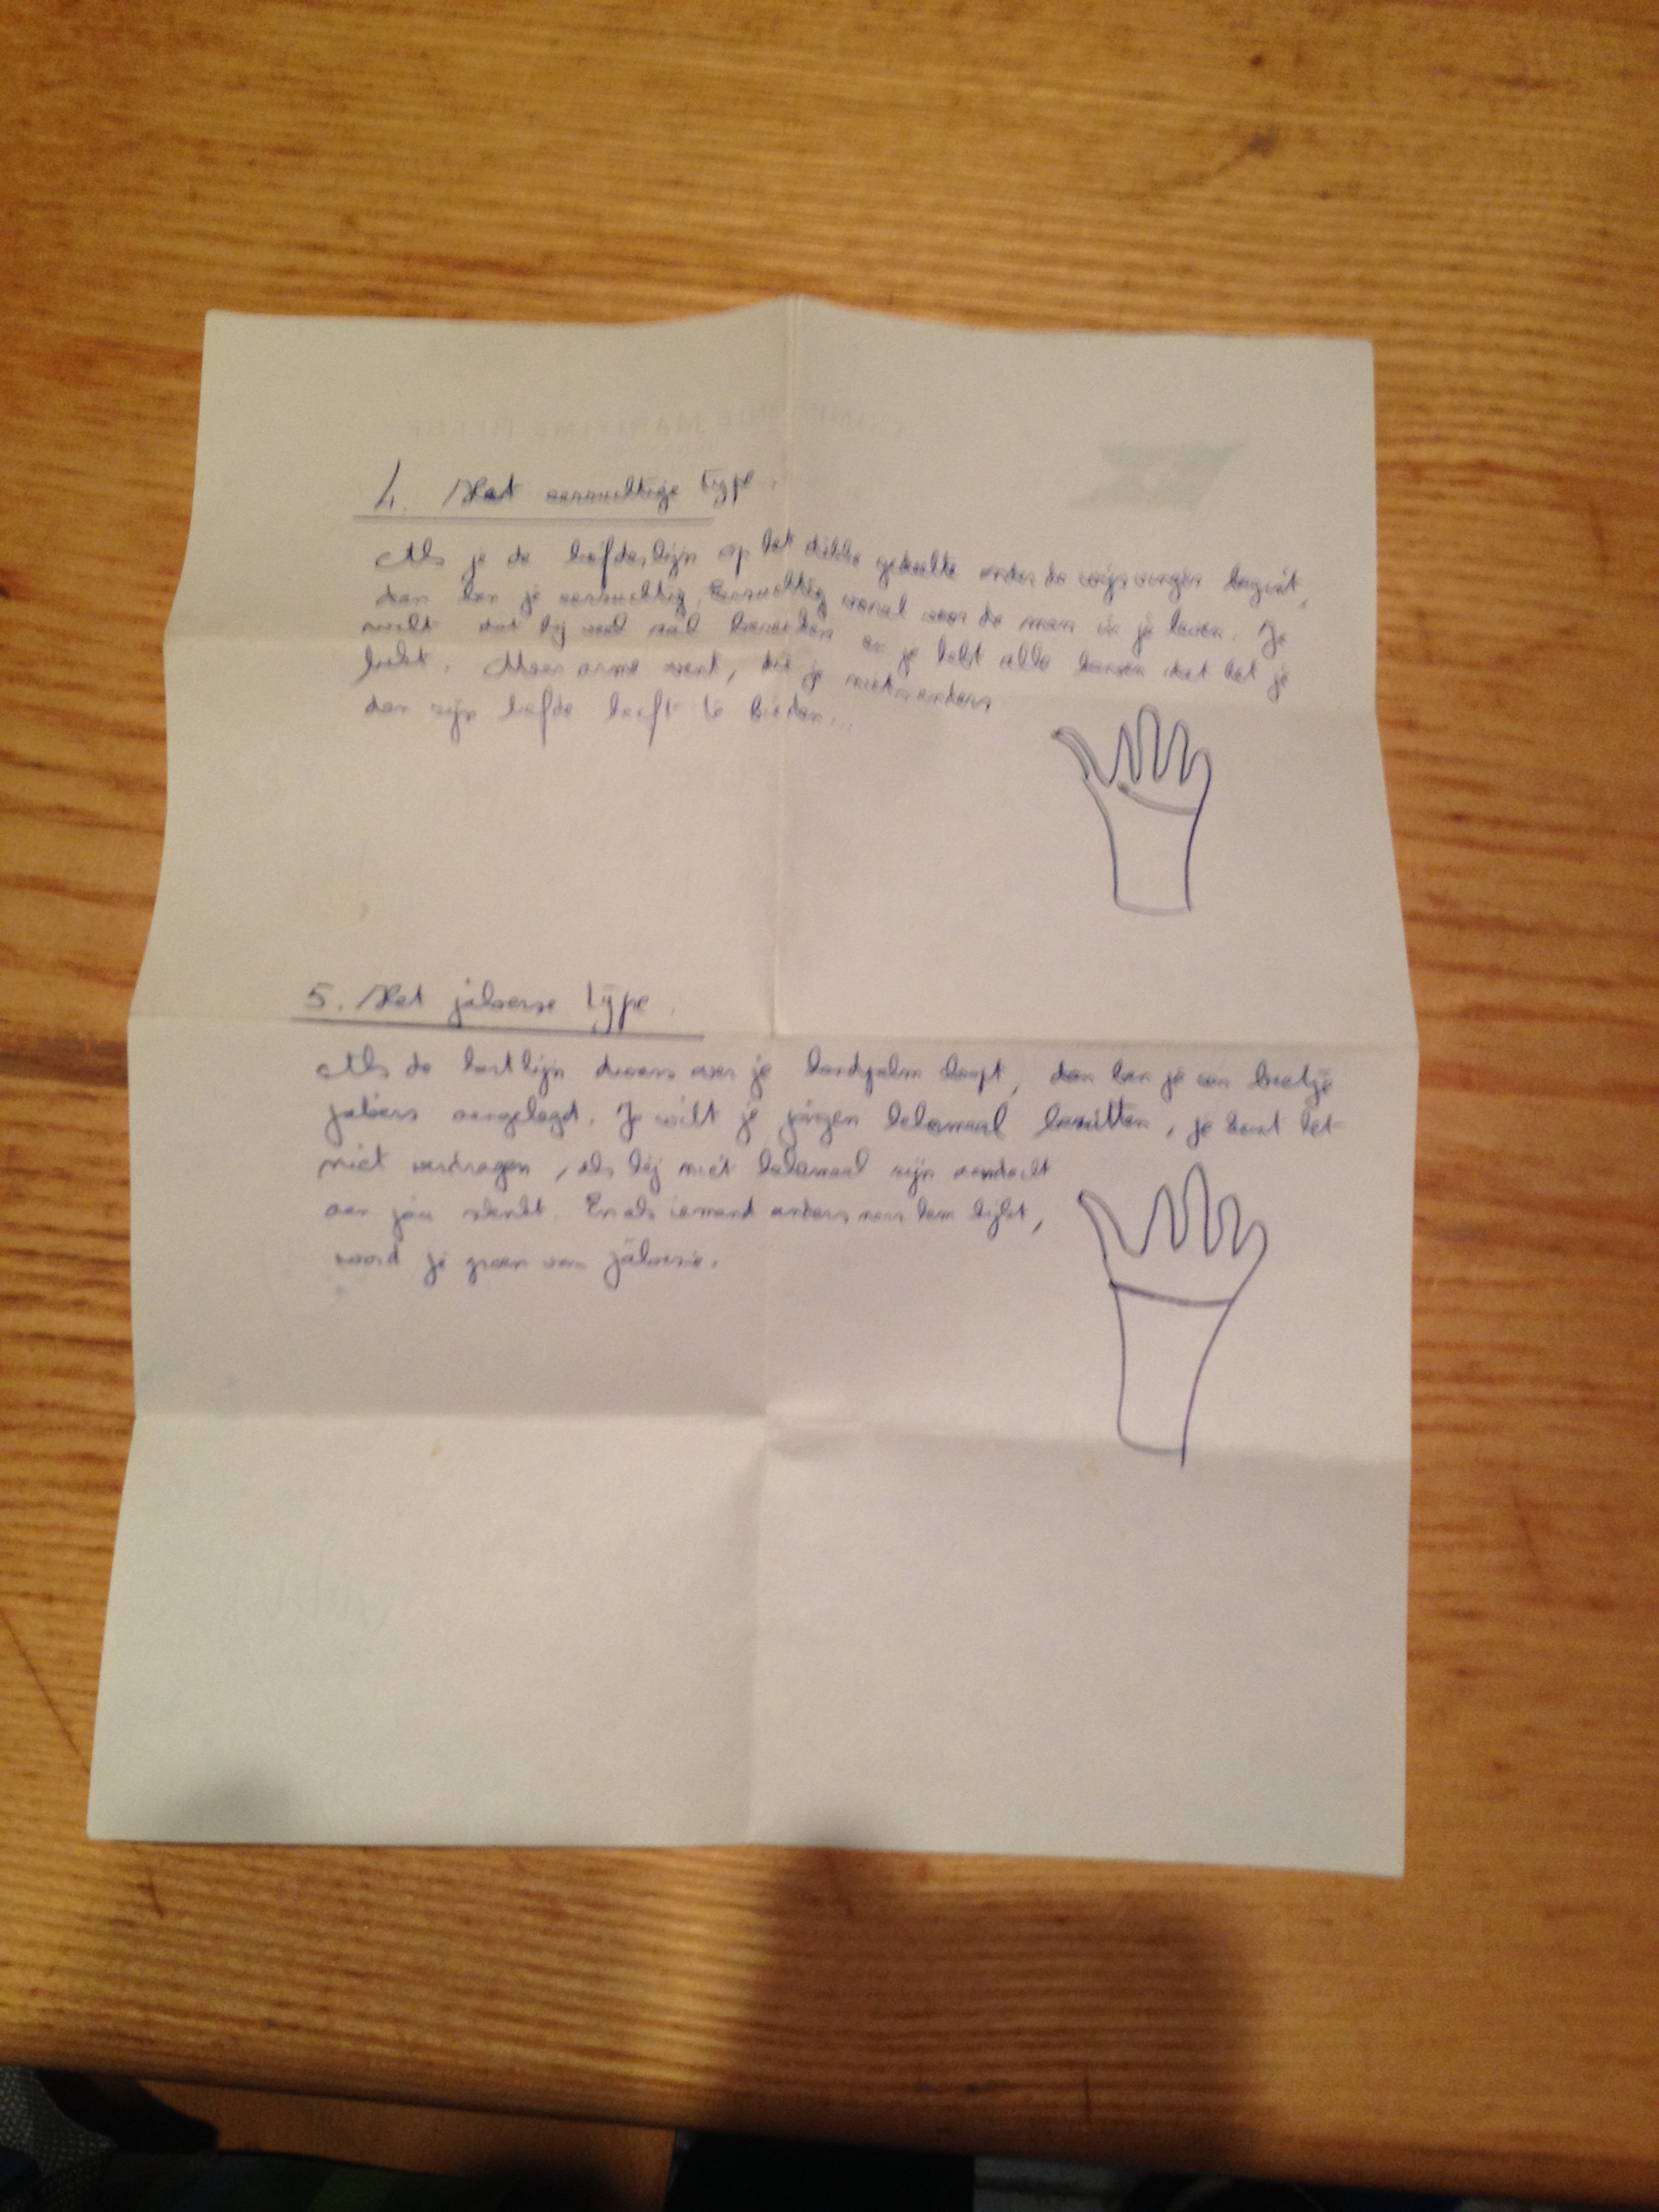 4. Het eerzuchtige type.
Als je de liefdeslijn op het dikke gedeelte onder de wijsvinger begint,
dan ben je eerzuchtig. Eerzuchtig vooral voor de man in je leven. Je
wilt dat hij veel zal bereiken en je hebt alle kansen dat het je
lukt. Maar arme vent, die je niets anders
dan zijn liefde heeft te bieden...
5. Het jaloerse type.
Als de hartlijn dwars over je handpalm loopt, dan ben je een beetje
jaloers aangelegd. Je wilt je jongen helemaal bezitten, je kunt het
niet verdragen, als hij niet helemaal zijn aandacht
aan jou schenkt. En als iemand anders naar hem kijkt,
word je groen van jaloezie.